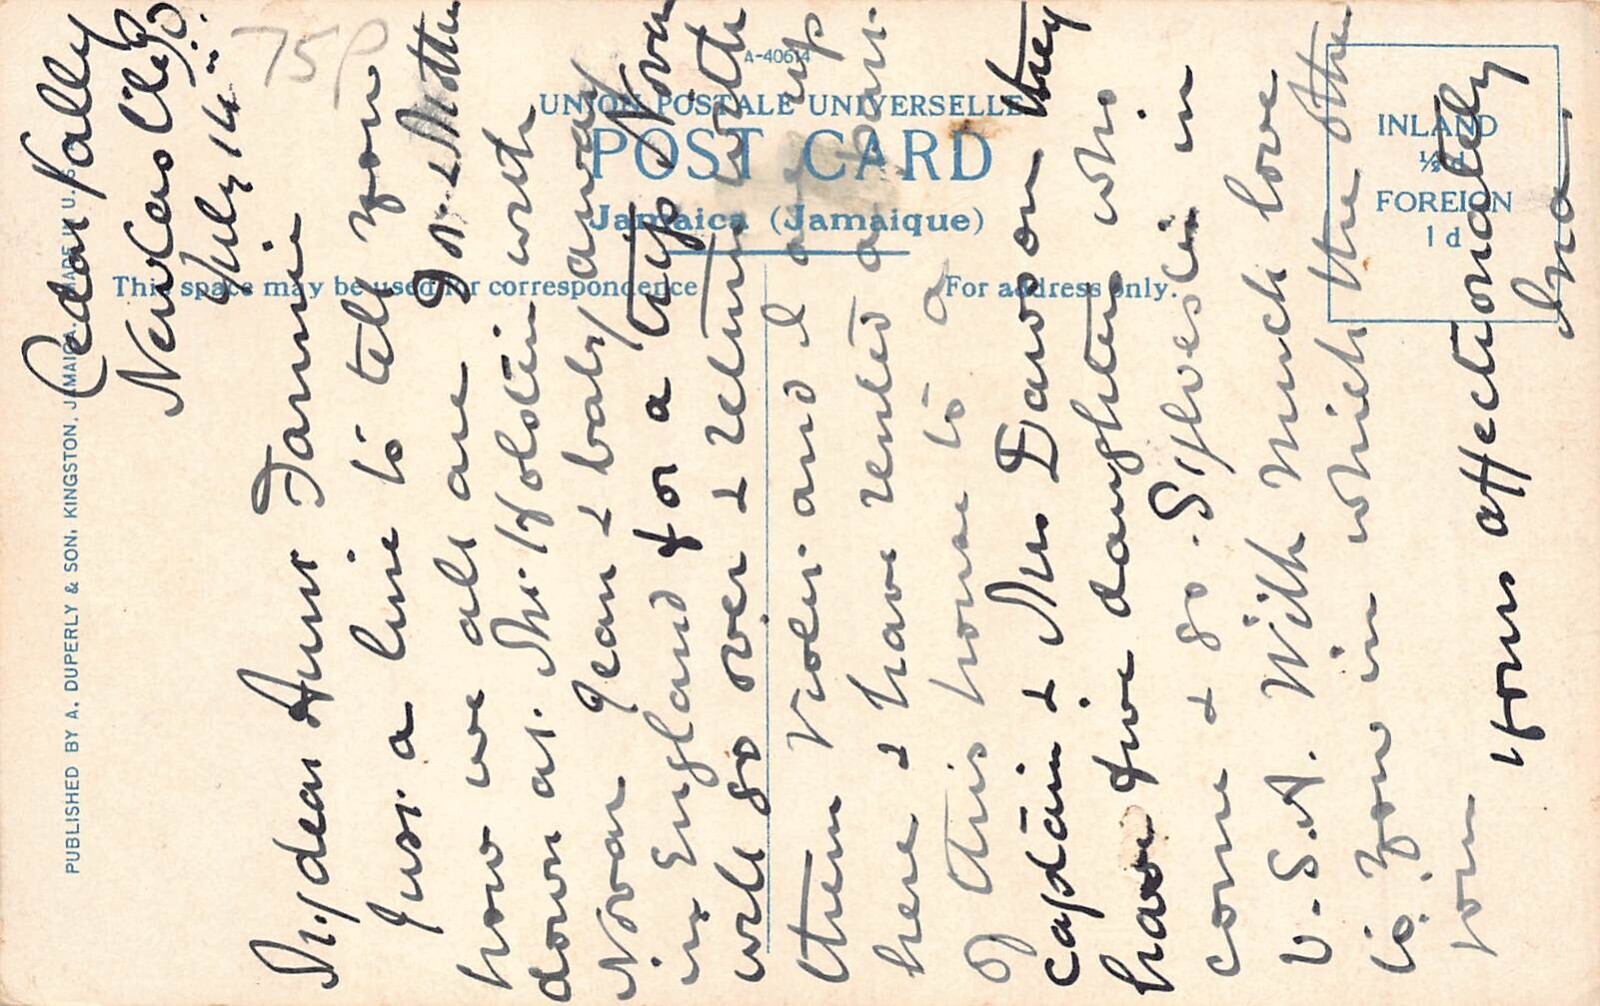 75p
A-40614
UNION POSTALE UNIVERSELLE
POST CARD
Jamaica (Jamaique)
This space may be used for correspondence
For address only.
INLAND
½ d
FOREIGN
1 d
PUBLISHED BY A. DUPERLY & SON, KINGSTON, JAMAICA. MADE IN U.S.A.
Cedar Vally
Newcastle P.O.
July 14th
My dear Aunt Fannie
Just a line to tell you
how we all are Dr. & Mother
down at Mr. Holstein with
Norar Jean & baby away
in England for a trip Nora
will go over & return with
them Violet and I are up
here & have rented a part
of this house to a
Captain & Mrs Dawson they
have five daughters who
come & go. Sylvester in
U.S.A. With much love
to you in which the other
join
yours affectionately
Ina.